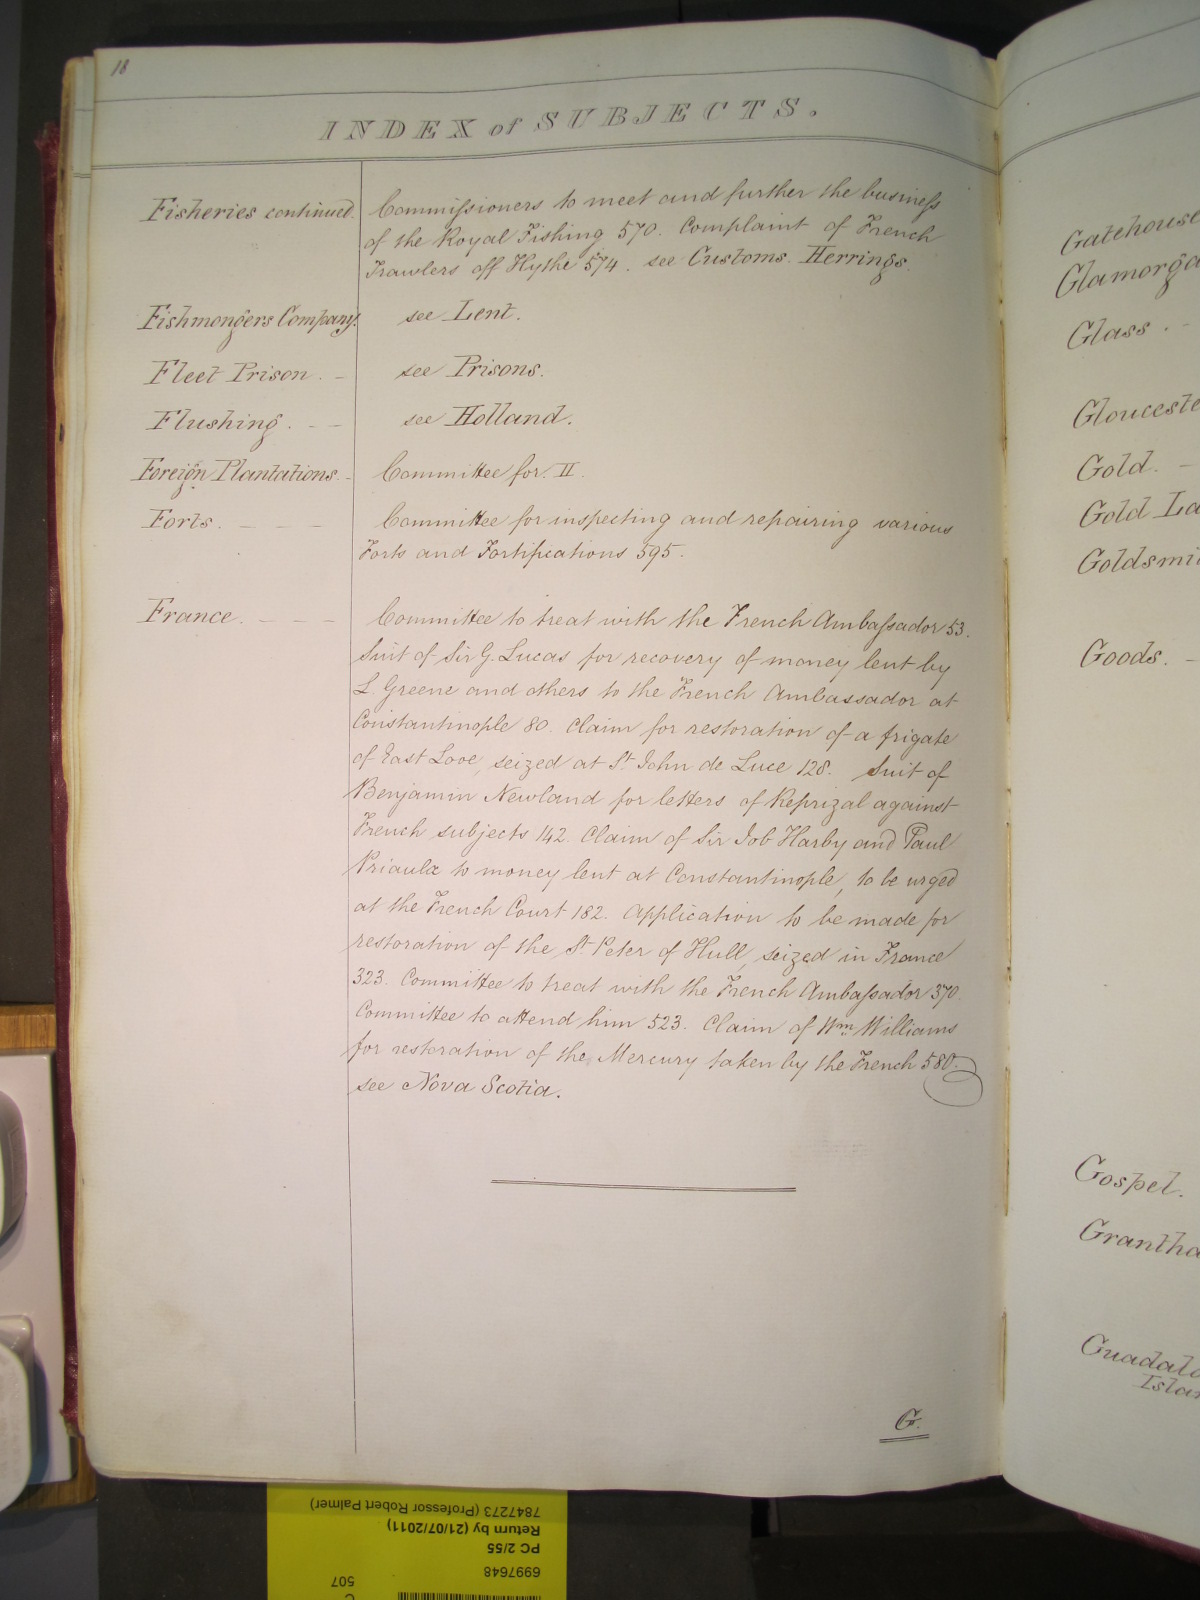 18
INDEX of SUBJECTS.
Fisheries continued Commissioners to meet and further the business
of the Royal Fishing 570. Complaint of French
Trawlers off Hythe 574. see Customs. Herrings.
Fishmongers Company. see Lent.
Fleet Prison. – see Prisons.
Flushing. – – see Holland.
Foreign Plantations. – Committee for. II.
Forts. – – – Committee for inspecting and repairing various
Forts and Fortifications 595.
France. – – – Committee to treat with the French Ambassador 53.
Suit of Sir G. Lucas for recovery of money lent by
L. Greene and others to the French Ambassador at
Constantinople 80. Claim for restoration of a frigate
of East Looe, seized at St. John de Luce 128. Suit of
Benjamin Newland for letters of Reprizal against
French subjects 142. Claim of Sir Job Harby and Paul
Priaulx to money lent at Constantinople, to be urged
at the French Court 182. Application to be made for
restoration of the St. Peter of Hull, seized in France
323. Committee to treat with the French Ambassador 370.
Committee to attend him 523. Claim of Wm. Williams
for restoration of the Mercury taken by the French 580.
see Nova Scotia.
G.
Gatehouse
Glamorga
Glass. –
Glouceste
Gold. –
Gold La
Goldsmi
Goods. –
Gospel.
Grantha
Guadalo
Islan
7847273 (Professor Robert Palmer)
Return by (21/07/2011)
PC 2/55
6997648
507